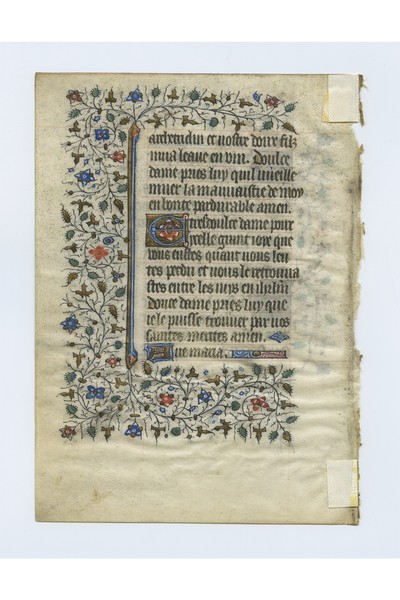 et vostre doux filz
mua leaue en vin. Doulce
dame pries luy quil vueille
muer la mauuaistie de moy
en bonte pardurable amen.
Tresdoulce dame pour
icelle grant ioye que
vous eustes quant vous leus
tes perdu et vous le retrouua
stes entre les
doulce dame pries luy que
ie le puisse trouuer par vos
saintes merites amen.
Aue maria.